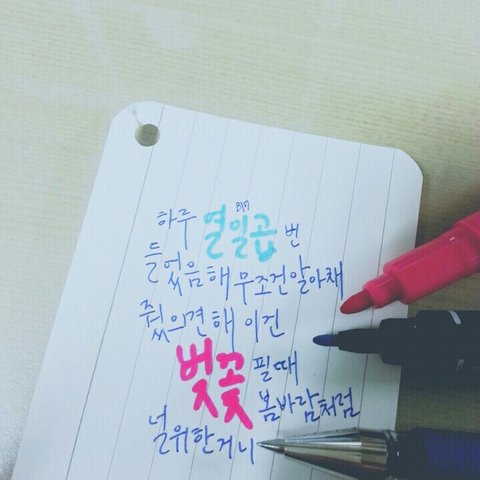 하루 열일곱 번
들었음해 무조건알아채
줬의견해 이건
벚꽃 필때
봄바람처럼
널위한거니